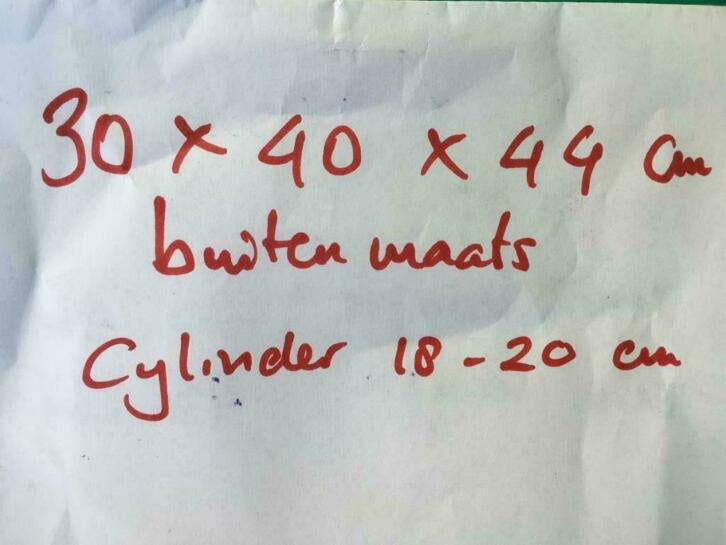 30 x 40 x 44 cm
buiten maats
Cylinder 18 - 20 cm